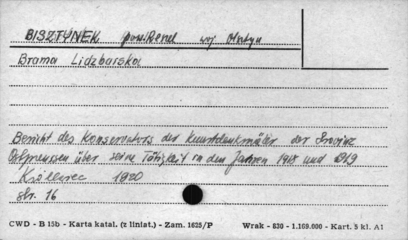 BISZTYNEK pow. Reszel woj Olsztyn
Brama Lidzbarska
Bericht des Konservators der Kunstdenkmäler der Provinz
Ostpreussen über seine Tätigkeit in den Jahren 1918 und 1919
Królewiec 1920
Str. 16
CWD - B 15b - Karta katal. (z liniat.) - Zam. 1625/P Wrak - 830 - 1.169.000 - Kart. 5 kl. A1